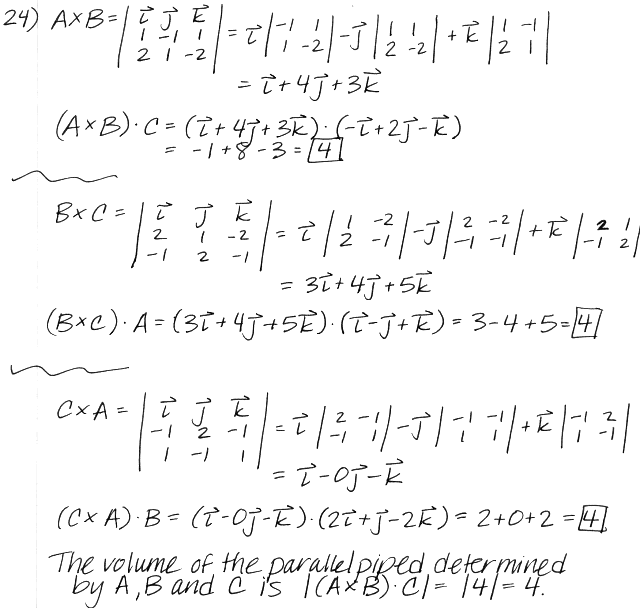 24) A×B = | i⃗ j⃗ k⃗ ; 1 -1 1 ; 2 1 -2 | = i⃗ | -1 1 ; 1 -2 | - j⃗ | 1 1 ; 2 -2 | + k⃗ | 1 -1 ; 2 1 |
= i⃗ + 4j⃗ + 3k⃗
(A×B)·C = (i⃗ + 4j⃗ + 3k⃗)·(-i⃗ + 2j⃗ - k⃗)
= -1 + 8 - 3 = 4
B×C = | i⃗ j⃗ k⃗ ; 2 1 -2 ; -1 2 -1 | = i⃗ | 1 -2 ; 2 -1 | - j⃗ | 2 -2 ; -1 -1 | + k⃗ | 2 1 ; -1 2 |
= 3i⃗ + 4j⃗ + 5k⃗
(B×C)·A = (3i⃗ + 4j⃗ + 5k⃗)·(i⃗ - j⃗ + k⃗) = 3 - 4 + 5 = 4
C×A = | i⃗ j⃗ k⃗ ; -1 2 -1 ; 1 -1 1 | = i⃗ | 2 -1 ; -1 1 | - j⃗ | -1 -1 ; 1 1 | + k⃗ | -1 2 ; 1 -1 |
= i⃗ - 0j⃗ - k⃗
(C×A)·B = (i⃗ - 0j⃗ - k⃗)·(2i⃗ + j⃗ - 2k⃗) = 2 + 0 + 2 = 4
The volume of the parallelpiped determined
by A, B and C is |(A×B)·C| = |4| = 4.